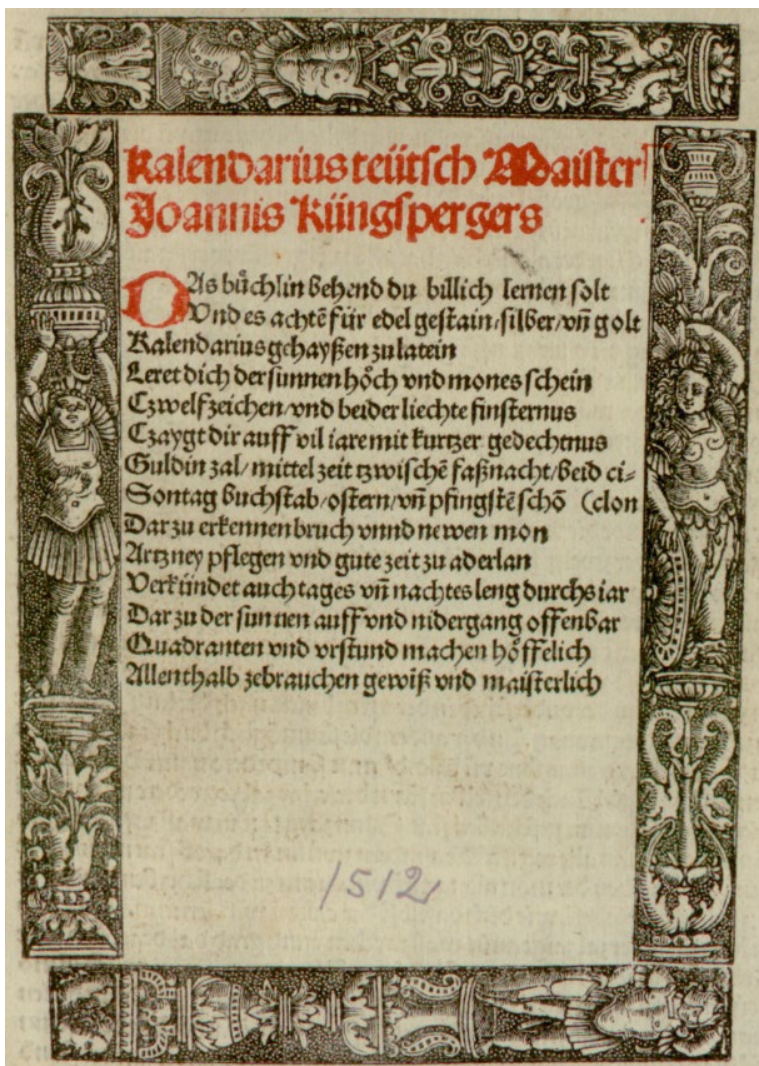 Kalendarius teütsch Maister
Joannis Küngspergers
DAs bůchlin behend du billich lernen solt
Vnd es achtē für edel gestain/silber/vn̄ golt
Kalendarius gehayßen zu latein
Leret dich der sunnen hỏch vnd mones schein
Czwelf zeichen/vnd beider liechte finsternus
Czaygt dir auff vil iare mit kurtzer gedechtnus
Guldin zal/mittel zeit tzwischē faßnacht/beid ci-
Sontag buchstab/ostern/vn̄ pfingstē schō (clon
Dar zu erkennen bruch vnnd newen mon
Artzney pflegen vnd gute zeit zu aderlan
Verkündet auch tages vn̄ nachtes leng durchs iar
Dar zu der sunnen auff vnd nidergang offenbar
Quadranten vnd vrstund machen hỏffelich
Allenthalb zebrauchen gewiß vnd maisterlich
1512